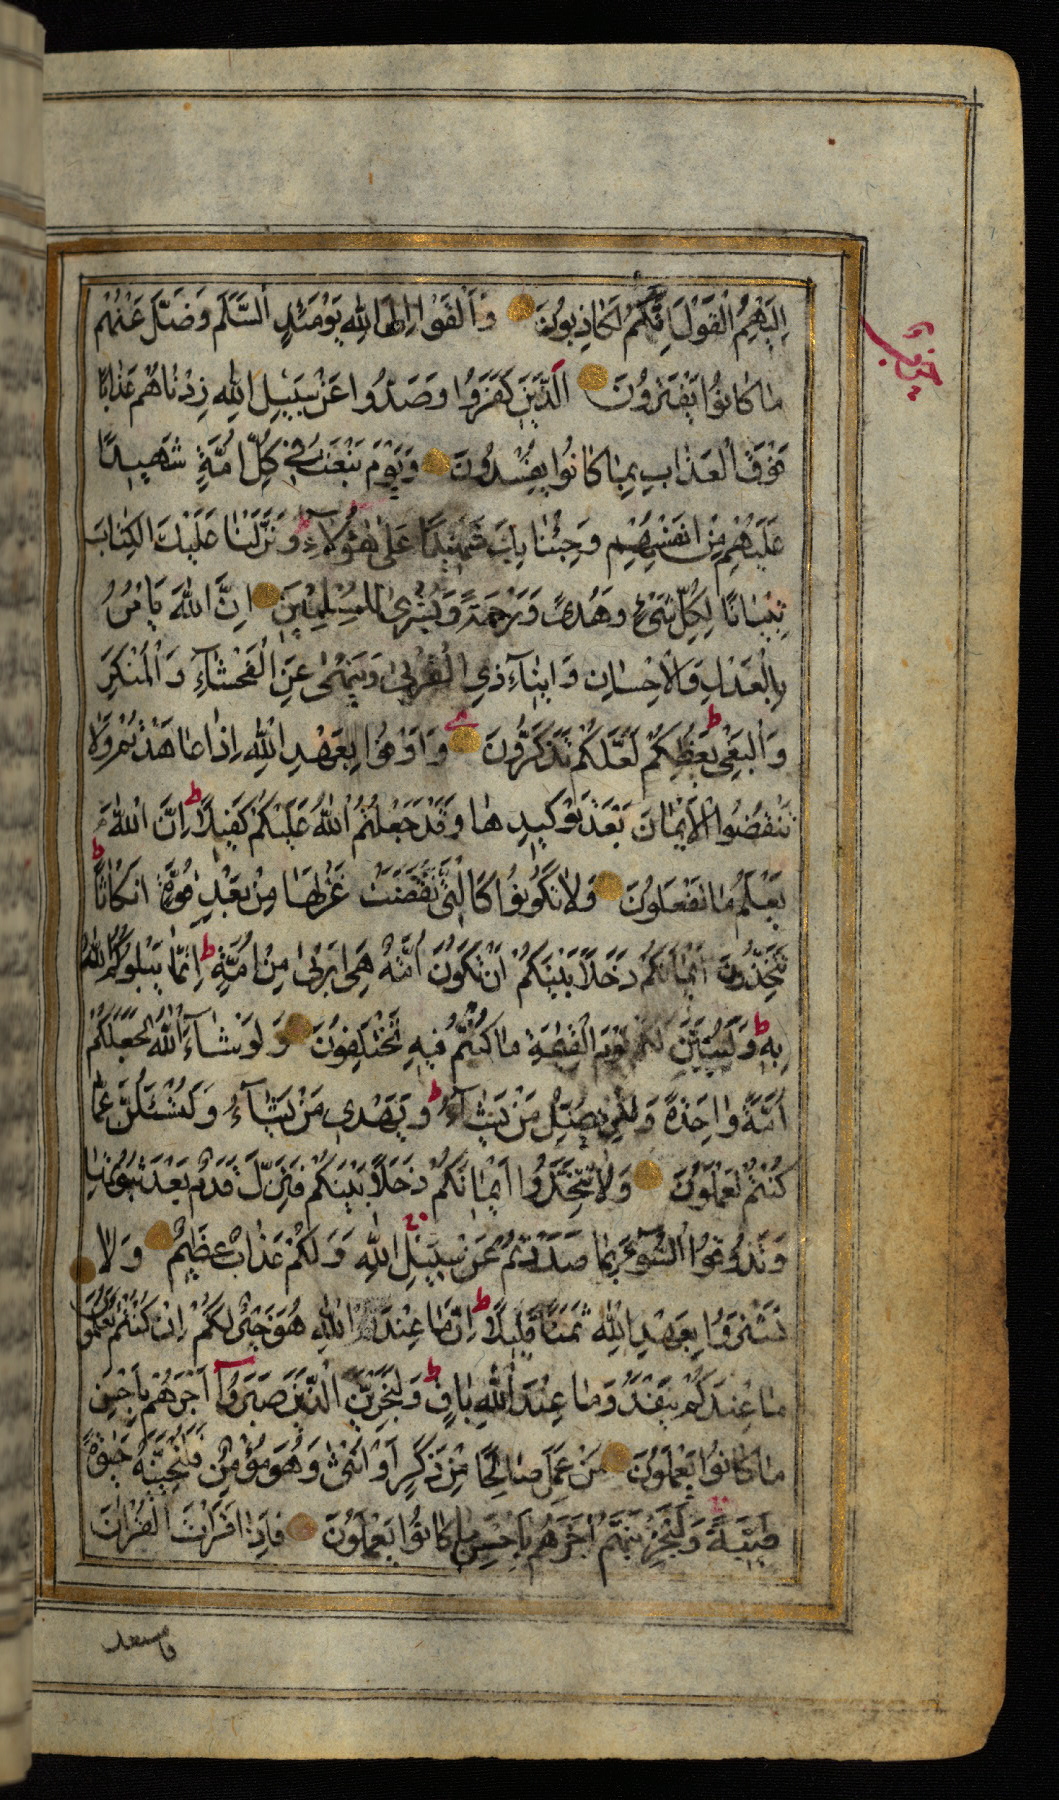 اِلَيْهِمُ الْقَوْلَ اِنَّكُمْ لَكَاذِبُونَ وَاَلْقَوْا اِلَى اللّٰهِ يَوْمَئِذٍ السَّلَمَ وَضَلَّ عَنْهُمْ
مَا كَانُوا يَفْتَرُونَ اَلَّذِينَ كَفَرُوا وَصَدُّوا عَنْ سَبِيلِ اللّٰهِ زِدْنَاهُمْ عَذَابًا
فَوْقَ الْعَذَابِ بِمَا كَانُوا يُفْسِدُونَ وَيَوْمَ نَبْعَثُ فِي كُلِّ اُمَّةٍ شَهِيدًا
عَلَيْهِمْ مِنْ اَنْفُسِهِمْ وَجِئْنَا بِكَ شَهِيدًا عَلَى هٰؤُلَآءِ وَنَزَّلْنَا عَلَيْكَ الْكِتَابَ
تِبْيَانًا لِكُلِّ شَيْءٍ وَهُدًى وَرَحْمَةً وَبُشْرَى لِلْمُسْلِمِينَ اِنَّ اللّٰهَ يَاْمُرُ
بِالْعَدْلِ وَالْاِحْسَانِ وَاِيتَآءِ ذِي الْقُرْبَى وَيَنْهَى عَنِ الْفَحْشَآءِ وَالْمُنْكَرِ
وَالْبَغْيِ ط يَعِظُكُمْ لَعَلَّكُمْ تَذَكَّرُونَ وَاَوْفُوا بِعَهْدِ اللّٰهِ اِذَا عَاهَدْتُمْ وَلَا
تَنْقُضُوا الْاَيْمَانَ بَعْدَ تَوْكِيدِهَا وَقَدْ جَعَلْتُمُ اللّٰهَ عَلَيْكُمْ كَفِيلًا ط اِنَّ اللّٰهَ
يَعْلَمُ مَا تَفْعَلُونَ وَلَا تَكُونُوا كَالَّتِي نَقَضَتْ غَزْلَهَا مِنْ بَعْدِ قُوَّةٍ اَنْكَاثًا ط
تَتَّخِذُونَ اَيْمَانَكُمْ دَخَلًا بَيْنَكُمْ اَنْ تَكُونَ اُمَّةٌ هِيَ اَرْبَى مِنْ اُمَّةٍ ط اِنَّمَا يَبْلُوكُمُ اللّٰهُ
بِهِ ط وَلَيُبَيِّنَنَّ لَكُمْ يَوْمَ الْقِيٰمَةِ مَا كُنْتُمْ فِيهِ تَخْتَلِفُونَ وَلَوْ شَآءَ اللّٰهُ لَجَعَلَكُمْ
اُمَّةً وَاحِدَةً وَلٰكِنْ يُضِلُّ مَنْ يَشَآءُ ط وَيَهْدِي مَنْ يَشَآءُ وَلَتُسْئَلُنَّ عَمَّا
كُنْتُمْ تَعْمَلُونَ وَلَا تَتَّخِذُوا اَيْمَانَكُمْ دَخَلًا بَيْنَكُمْ فَتَزِلَّ قَدَمٌ بَعْدَ ثُبُوتِهَا
وَتَذُوقُوا السُّوءَ بِمَا صَدَدْتُمْ عَنْ سَبِيلِ اللّٰهِ وَلَكُمْ عَذَابٌ عَظِيمٌ وَلَا
تَشْتَرُوا بِعَهْدِ اللّٰهِ ثَمَنًا قَلِيلًا ط اِنَّمَا عِنْدَ اللّٰهِ هُوَ خَيْرٌ لَكُمْ اِنْ كُنْتُمْ تَعْلَمُونَ
مَا عِنْدَكُمْ يَنْفَدُ وَمَا عِنْدَ اللّٰهِ بَاقٍ ط وَلَنَجْزِيَنَّ الَّذِينَ صَبَرُوآ اَجْرَهُمْ بِاَحْسَنِ
مَا كَانُوا يَعْمَلُونَ مَنْ عَمِلَ صَالِحًا مِنْ ذَكَرٍ اَوْ اُنْثَى وَهُوَ مُؤْمِنٌ فَلَنُحْيِيَنَّهُ حَيٰوةً
طَيِّبَةً وَلَنَجْزِيَنَّهُمْ اَجْرَهُمْ بِاَحْسَنِ مَا كَانُوا يَعْمَلُونَ فَاِذَا قَرَاْتَ الْقُرْاٰنَ
فاستعذ